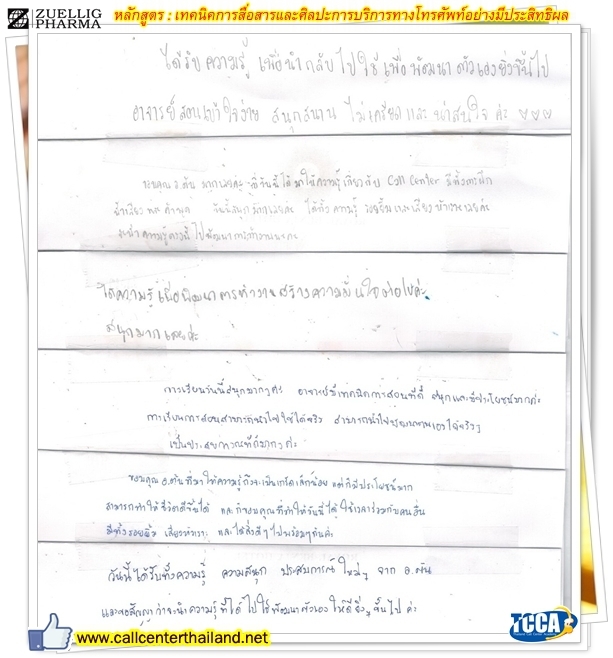 ZUELLIG
PHARMA
หลักสูตร : เทคนิคการสื่อสารและศิลปะการบริการทางโทรศัพท์อย่างมีประสิทธิผล
ได้รับความรู้ เพื่อนำกลับไปใช้ เพื่อพัฒนาตัวเองยิ่งขึ้นไป
อาจารย์สอนเข้าใจง่าย สนุกสนาน ไม่เครียดและ น่าสนใจ ค่ะ ♡♡♡
ขอบคุณ อ.ต้น มากเลยค่ะ ที่วันนี้ได้มาให้ความรู้เกี่ยวกับ Call Center มีทั้งการฝึก
น้ำเสียง คำพูด วันนี้สนุกมากเลยค่ะ ได้ทั้งความรู้ รอยยิ้มและเสียงหัวเราะเลยค่ะ
จะนำความรู้ตรงนี้ไปพัฒนาการทำงานนะคะ
ได้ความรู้เพื่อพัฒนาการทำงาน สร้างความมั่นใจต่อไปค่ะ
สนุกมากเลยค่ะ
การเรียนวันนี้สนุกมากๆค่ะ อาจารย์มีเทคนิคการสอนที่ดี สนุกและมีประโยชน์มากค่ะ
การเรียนการสอนสามารถนำไปใช้ได้จริง สามารถนำไปพัฒนาตนเองได้จริงๆ
เป็นประสบการณ์ที่ดีมากๆ ค่ะ
ขอบคุณ อ.ต้นที่มาให้ความรู้ถึงจะเป็นเกร็ดเล็กน้อย แต่ก็มีประโยชน์มาก
สามารถทำให้ชีวิตดีขึ้นได้ และก็ขอบคุณที่ทำให้วันนี้ได้ใช้เวลาร่วมกับคนอื่น
มีทั้งรอยยิ้ม เสียงหัวเราะ และได้สิ่งดีๆ ไปพร้อมๆกันค่ะ
วันนี้ได้รับทั้งความรู้ ความสนุก ประสบการณ์ใหม่ๆ จาก อ.ต้น
และขอสัญญาว่าจะนำความรู้ที่ได้ไปใช้พัฒนาตัวเองให้ดียิ่งๆขึ้นไป ค่ะ
www.callcenterthailand.net
TCCA